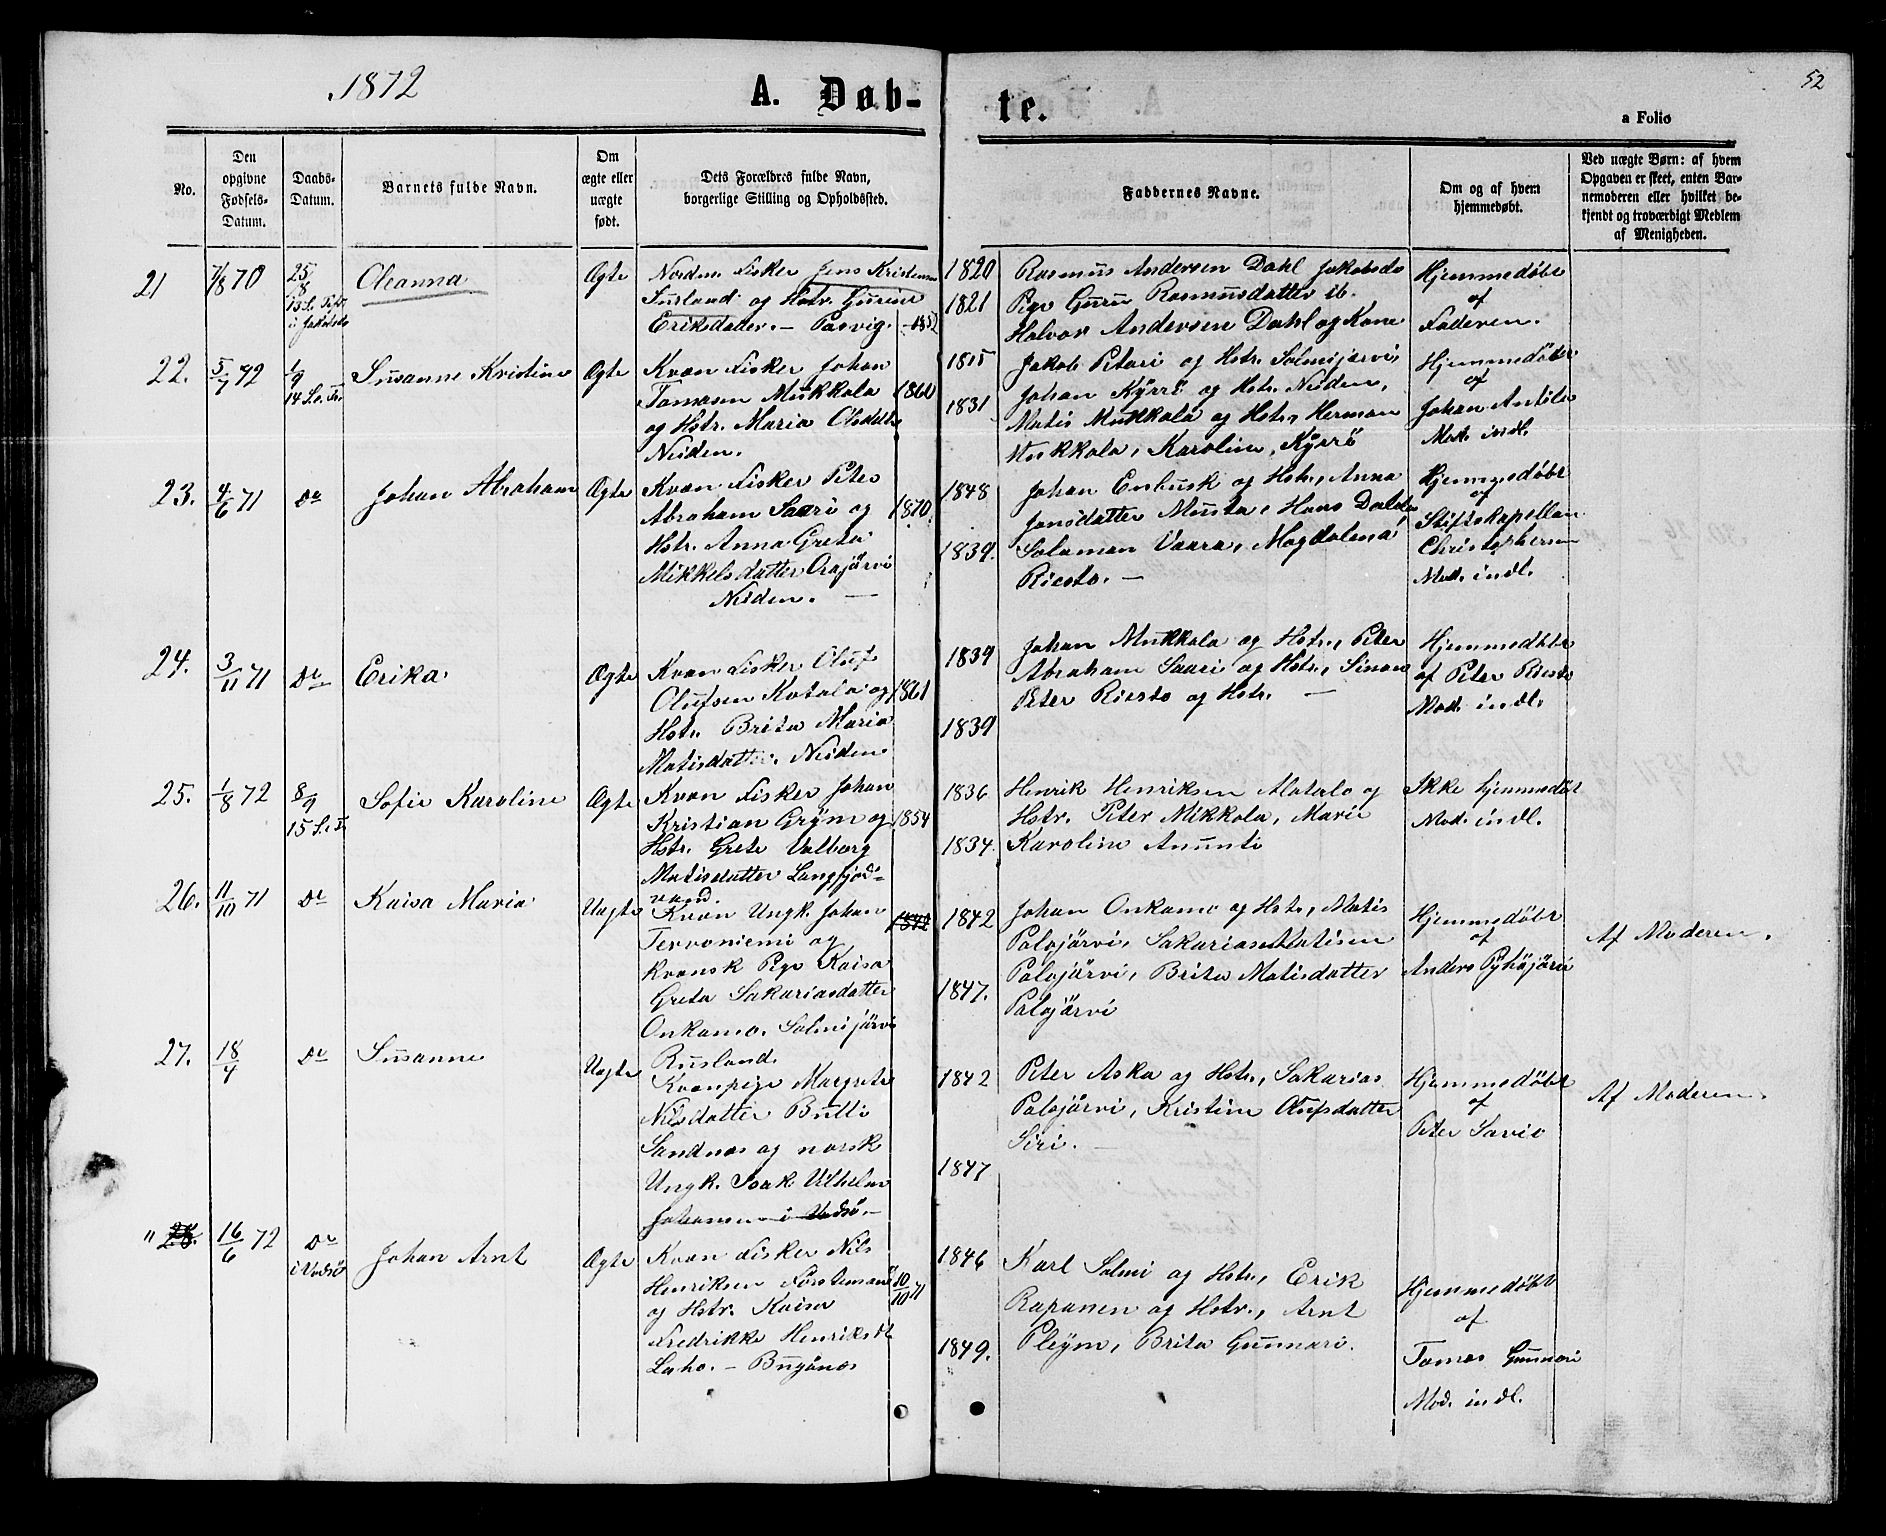 1872
A. Døb-
te.
52
a Folio
No.
Den
opgivne
Fødsels-
Datum.
Daabs-
Datum.
Barnets fulde Navn.
Om
ægte eller
uægte
født.
Dets Forældres fulde Navn,
borgerlige Stilling og Opholdssted.
Faddernes Navne.
Om og af hvem
hjemmedøbt.
Ved uægte Børn: af hvem
Opgaven er skeet, enten Bar-
nemoderen eller hvilket be-
kjendt og troværdigt Medlem
af Menigheden.
21
7/8 70
25/8
13 S. Tr.
i Jakobselv
Oleanna
Ægte
Nordm. Fisker Jens Kristensen
og Hstr.
Eriksdatter. — Pasvig.
1820
1821
Rasmus Andersen Dahl Jakobselv
Pige Guru Rasmusdatter ib.
Halvor Andersen Dahl og Kone
Hjemmedøbt
af
Faderen.
22.
5/7 72
1/9
14 S. e. Tr.
Susanne Kristine
Ægte
Kvæn Fisker Johan
Tomasen Mukkala
og Hstr. Maria Olsdatter
Neiden.
1860
1815
1831
Jakob Petari og Hstr. Salmijærvi,
Johan Kyrrö og Hstr. Neiden,
Matis Mukkala og Hstr., Herman
Mukkala, Karoline Kyrrö
Hjemmedøbt
af
Johan Antila
Mod. indl.
23.
4/6 71
Do
Johan Abraham
Ægte
Kvæn Fisker Peter
Abraham Saari og
Hstr. Anna Greta
Mikkelsdatter Orajärvi
Neiden. —
1870.
1848
1839.
Johan Enbusk og Hstr., Anna
Jonsdatter Musta, Hans
Salamon Vaara, Magdalena
Riesto. —
Hjemmedøbt
af
Stiftskapellan
Christophersen
Mod. indl.
24.
3/11 71
Do
Erika.
Ægte
Kvæn Fisker Oluf
Olufsen Katala og
Hstr. Brita Maria
Matisdatter. Neiden
1861
1839
1839
Johan Mukkala og Hstr., Peter
Abraham Saari og Hstr., Simon
Peter Riesto og Hstr. —
Hjemmedøbt
af Peter Riesto
Mod. indl.
25.
1/8 72
8/9
15 S. e. T.
Sofie Karoline
Ægte
Kvæn Fisker Johan
Kristian Grym og
Hstr. Grete Valborg
Matisdatter Langfjord-
vand.
1854
1836
1834.
Henrik Henriksen Matala og
Hstr. Peter Mikkola, Marie
Karoline Anunti
Ikke hjemmedøbt
Mod. indl.
26.
11/10 71
Do
Kaisa Maria
Uægte
Kvæn Ungk. Johan
Tervoniemi og
kvænsk Pige Kaisa
Greta Sakariasdatter
Onkamo. Salmijärvi
Rusland.
1842
1847.
Johan Onkamo og Hstr., Matis
Palojärvi, Sakarias Matisen
Palojärvi, Brita Matisdatter
Palojärvi
Hjemmedøbt
af
Anders Pyhäjärvi
Af Moderen.
27.
18/4
Do
Susanne
Uægte
Kvænpige Margrete
Nilsdatter Butti
Sandnes og norsk
Ungk. Isak Vilhelm
Johansen i Vadsö. —
1842
1847
Peter Aska og Hstr., Sakarias
Palojärvi, Kristine Olufsdatter
Siri. —
Hjemmedøbt
af
Peter Savio
Af Moderen.
" 28.
16/6 72
Do
i Vadsö
Johan Arnt
Ægte
Kvæn Fisker Nils
Henriksen
og Hstr. Kaisa
Fredrikke Henriksdt.
Laho. — Bugönes
10/10 71
1846
1849.
Karl Salmi og Hstr., Erik
Rapanen og Hstr., Arnt
Pleym, Brita Gunnari.
Hjemmedøbt
af
Tomas Gunnari
Mod. indl.